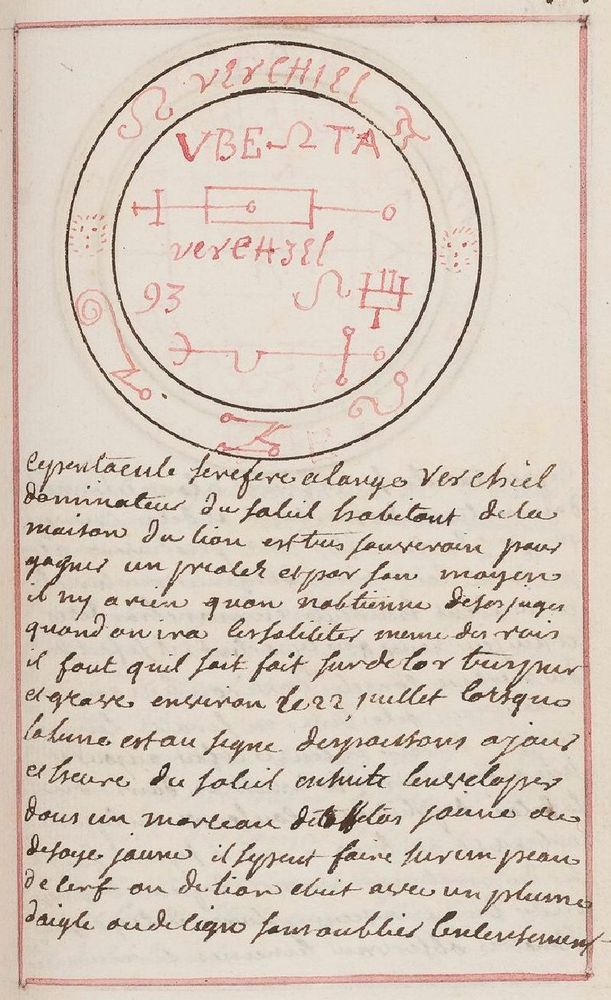 VerCHIEL
VBE TA
verCHIEL
93
cepentacule serefere alange verchiel
dominateur du soleil habitant de la
maison du lion est tres souverain pour
gagner un procez et par son moyen
il ny a rien quon nobtienne deses juges
quand on ira les soliciter meme des rois
il faut quil soit fait sur de lor tres pur
et grave environ le 22 juillet lorsque
la lune est au signe des poissons a jour
et heure du soleil ensuite lenveloper
dans un morceau de jaune ou
de soye jaune il se peut faire sur un peau
de cerf ou de lion ecrit avec un plume
daigle ou de sans oublier lencensement